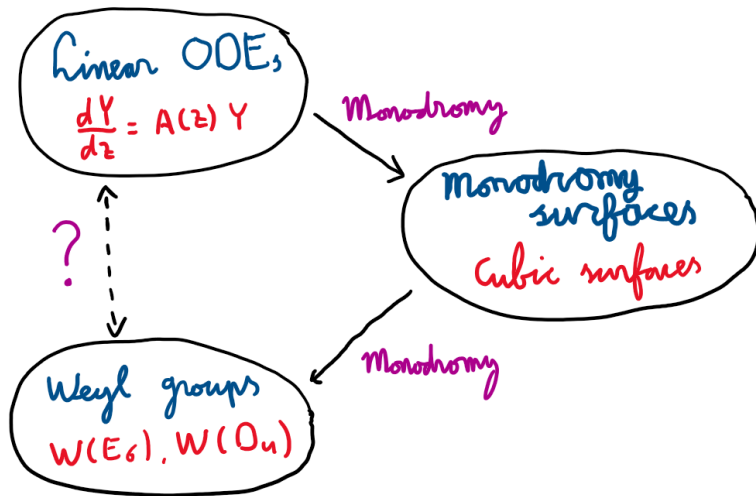 Linear ODEs
dY/dz = A(z) Y
Monodromy
Monodromy
surfaces
Cubic surfaces
?
Monodromy
Weyl groups
W(E₆), W(D₄)